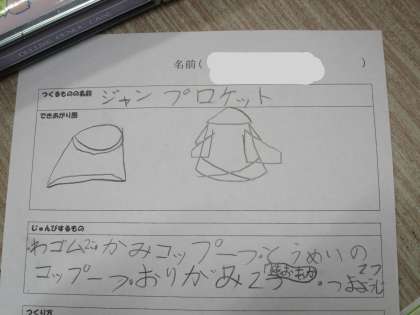 名前( )
つくるものの名前 ジャンプロケット
できあがり図
じゅんびするもの
わゴム2つ・かみコップ一つ・とうめいの
コップ一つ・おりがみ2つ
つくり方